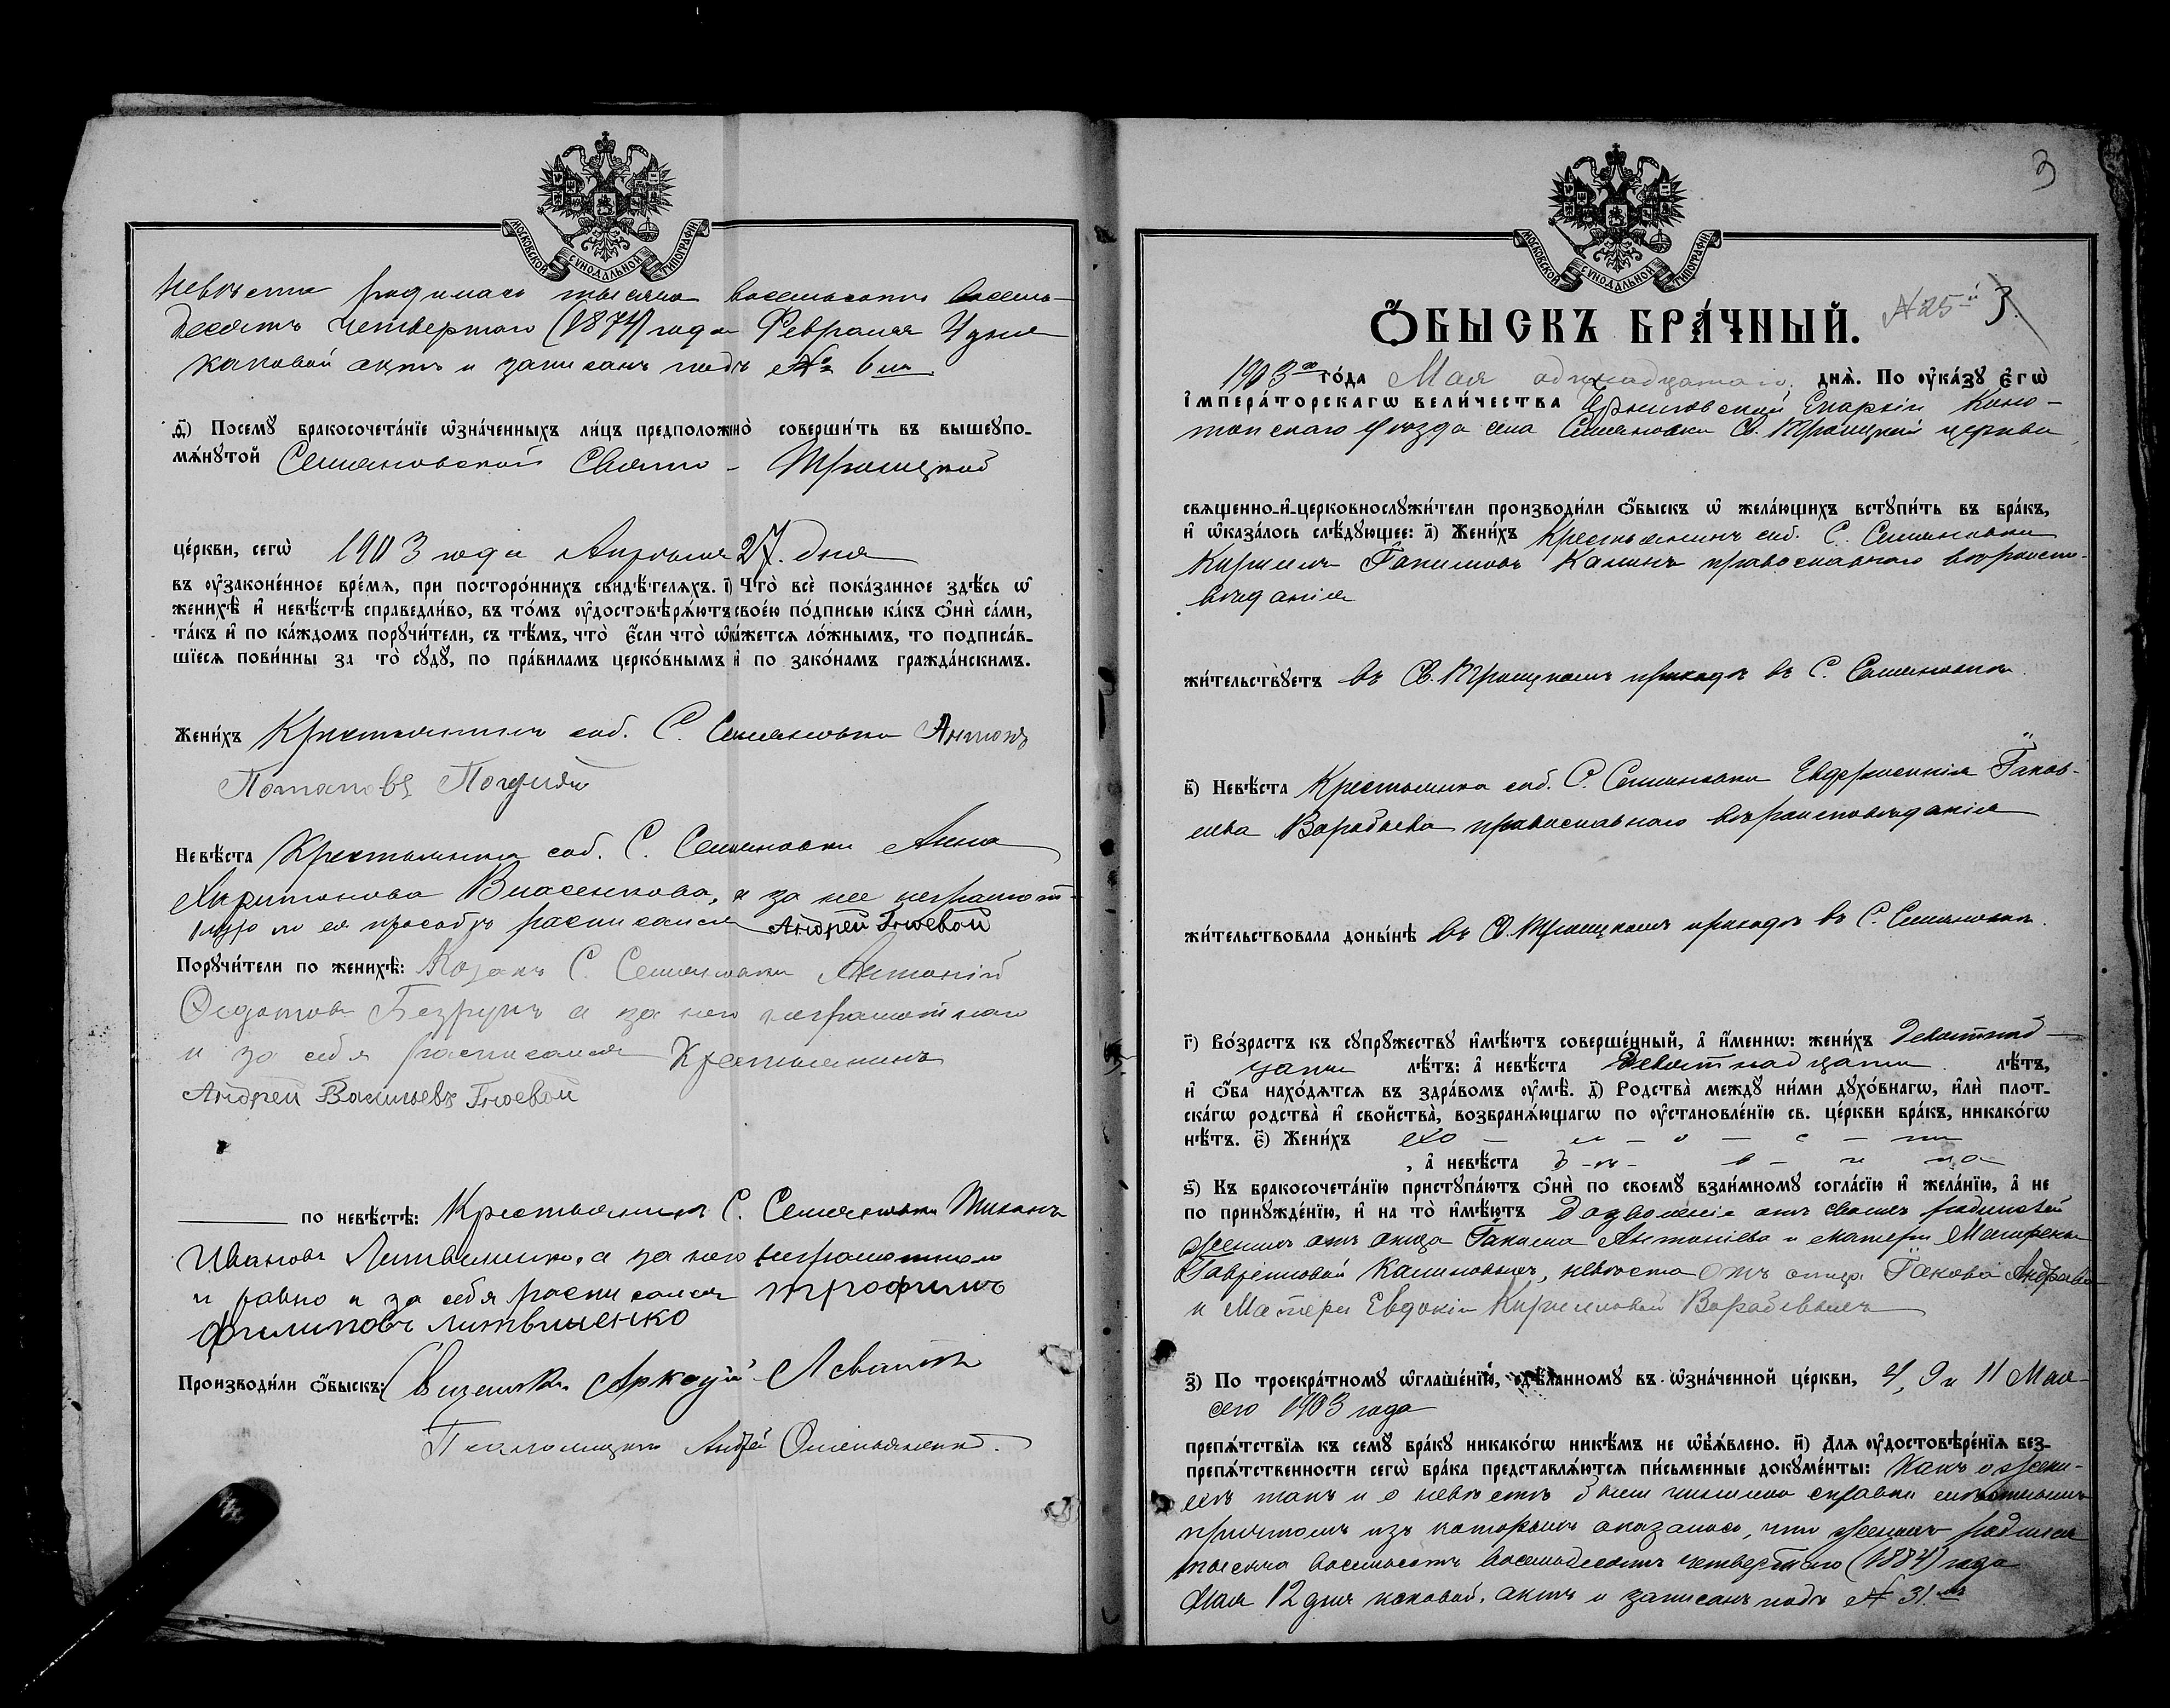 МОСКОВСКОЙ СУНОДАЛЬНОЙ ТИПОГРАФІИ
Невѣста родилась тысяча восемьсотъ восемь-
десятъ четвертаго (1874) года Февраля 4 дня
каковой актъ и записанъ подъ № 6 мъ
д҃) Посемꙋ бракосочета́нїе ѡ҆зна́ченныхъ ли́цъ предположено̀ соверши́ть въ вышеꙋпо-
мѧ́нꙋтой Семяновской Свято - Троицкой
це́ркви, сегѡ̀ 1903 года Апрѣля 27. дня
въ ѹ҆законе́нное вре́мѧ, при посторо́ннихъ свидѣ́телѧхъ. і҃) Что̀ всѐ пока́занное здѣ́сь ѡ҆
женихѣ̀ и҆ невѣ́стѣ справедли́во, въ то́мъ ѹ҆достовѣрѧ́ютъ свое́ю по́дписью ка́къ ѻ҆нѝ са́ми,
та́къ и҆ по ка́ждомъ порꙋчи́тели, съ тѣ́мъ, что̀ є҆́сли что̀ ѡ҆ка́жетсѧ ло́жнымъ, то подписа́в-
шїесѧ пови́нны за то̀ сꙋдꙋ̀, по пра́виламъ церко́внымъ и҆ по зако́намъ гражда́нскимъ.
Жени́хъ Крестьянинъ соб. С. Семяновки Антонъ
Потаповъ
Невѣ́ста Крестьянка соб. С. Семяновки Анна
Харитонова Власенкова, а за нее неграмот-
ную по ея просьбѣ росписался Андрей Гноевой
Порꙋчи́тели по женихѣ̀: Козакъ С. Семяновки Антоній
Федотовъ Безрукъ а за него неграмотнаго
и за себя росписался Крестьянинъ
Андрей Васильевъ Гноевой
по невѣ́стѣ: Крестьянинъ С. Семяновки Тихонъ
Ивановъ Литвиненко, а за него неграмотнаго
и равно и за себя росписался Трофимъ
Филиповъ Литвиненко
Производи́ли ѻ҆́быскъ: Священникъ Аркадій
Псаломщикъ Андрей Омельяненко.
3
МОСКОВСКОЙ СУНОДАЛЬНОЙ ТИПОГРАФІИ
Ѻ҆́БЫСКЪ БРА́ЧНЫЙ. № 25й 3.
1903го го́да Мая одинадцатаго. днѧ̀. По ѹ҆ка́зꙋ Є҆гѡ̀
І҆мпера́торскагѡ вели́чества Черниговской Епархіи Коно-
топскаго Уѣзда села Семяновки Св. Троицкой церкви
свѧщенно-и҆-церковнослꙋжи́тели производи́ли ѻ҆́быскъ ѡ҆ жела́ющихъ встꙋпи́ть въ бра́къ,
и҆ ѡ҆каза́лось слѣ́дꙋющее: а҃) Жени́хъ Крестьянинъ соб. С. Семяновки
Кириллъ Іакимовъ Калинъ православнаго вѣроиспо-
вѣданія
жи́тельствꙋетъ въ Св. Троицкомъ приходѣ въ С. Семяновкѣ.
в҃) Невѣ́ста Крестьянка соб. С. Семяновки Евфросинія Іаков-
лева Воробьева православнаго вѣроисповѣданія
жи́тельствовала доны́нѣ въ Св. Троицкомъ приходѣ въ С. Семяновкѣ.
г҃) Во́зрастъ къ сꙋпрꙋ́жествꙋ и҆мѣ́ютъ соверше́нный, а҆ и҆́меннѡ: жени́хъ девятнад-
цати лѣ́тъ: а҆ невѣ́ста девятнадцати лѣ́тъ,
и҆ ѻ҆́ба нахо́дѧтсѧ въ здра́вомъ ѹ҆мѣ̀. д҃) Родства̀ междꙋ̀ ни́ми дꙋхо́внагѡ, и҆лѝ плот-
ска́гѡ родства̀ и҆ свойства̀, возбранѧ́ющагѡ по ѹ҆становле́нїю св. це́ркви бра́къ, никако́гѡ
нѣ́тъ. є҃) Жени́хъ хо - л - о - с - тъ
, а҆ невѣ́ста д - ѣ - в - и - ца
ѕ҃) Къ бракосочета́нїю пристꙋпа́ютъ ѻ҆нѝ по своемꙋ̀ взаи́мномꙋ согла́сїю и҆ жела́нїю, а҆ не
по принꙋжде́нїю, и҆ на то̀ и҆мѣ́ютъ дозволеніе отъ своихъ родителей
женихъ отъ отца Іакима Антоніева и матери Матрены
Гавриловой Калиновыхъ, невѣста отъ отца Іакова Андреева
и Матери Евдокіи Кирилловой Воробьевыхъ
з҃) По троекра́тномꙋ ѡ҆глаше́нїю, сдѣ́ланномꙋ въ ѡ҆зна́ченной це́ркви, 4, 9 и 11 Мая
сего 1903 года
препѧ́тствїѧ къ семꙋ̀ бра́кꙋ никако́гѡ никѣ́мъ не ѡ҆б̾ѧ́влено. и҃) Длѧ ѹ҆достовѣре́нїѧ без-
препѧ́тственности сегѡ̀ бра́ка представлѧ́ютсѧ пи́сьменные докꙋме́нты: Какъ о жени-
хѣ такъ и о невѣстѣ были чинимы справки мѣстнымъ
причтомъ изъ которыхъ оказалось, что женихъ родился
тысяча восемьсотъ восемьдесятъ четвертаго (1884) года
Мая 12 дня каковой актъ и записанъ подъ № 31 мъ